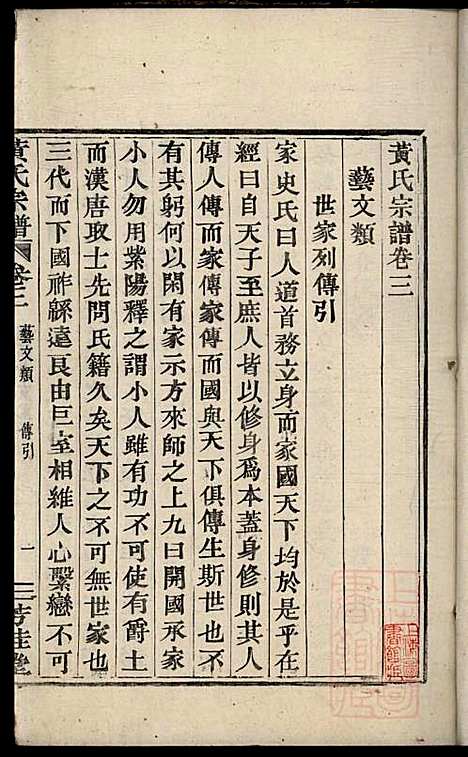 黃氏宗譜卷三
藝文類
世家列傳引
家史氏曰人道首務立身而家國天下均於是乎在
經曰自天子至於庶人皆以修身爲本蓋身修則其人
傳人傳而家傳家傳而國與天下俱傳生斯世也不可
有其躬何以閑有家示方來師之上九曰開國承家
小人勿用紫陽釋之謂小人雖有功不可使有爵土
而漢唐取士先問氏籍久矣天下之不可無世家也
三代而下國祚緜遠良由巨室相維人心繫戀不可
黃氏宗譜
卷三
藝文類
傳引
一
上海圖書館藏